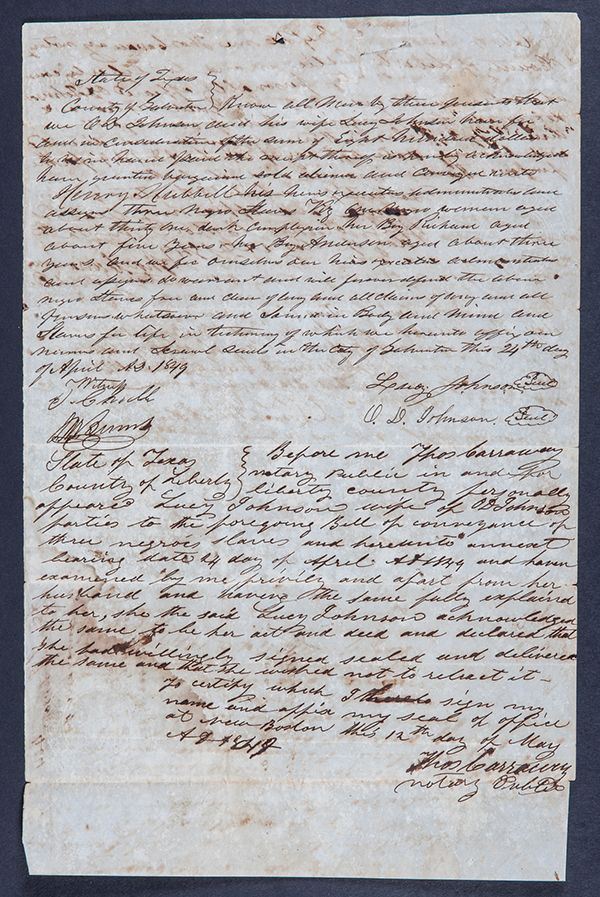 State of Texas
County of Galveston } Know all Men by these presents that
we O. D. Johnson and his wife Lucy Johnson have for
and in consideration of the sum of Eight Hundred Dollars
to in hand paid the receipt thereof is hereby acknowledged
have granted bargained sold and conveyed unto
Henry Hubbell his heirs executors administrators and
assigns three Negro Slaves Viz woman aged
about thirty one, dark complexion her Boy Richard aged
about five years & her Boy Anderson aged about three
years. And we for ourselves our heirs executors administrators
and assigns do warrant and will forever defend the above
negro Slaves free and clear of any and all claims of any and all
persons whatsoever and Sound in Body and Mind and
Slaves for life in testimony of which we hereunto affix our
names and Seals in the City of Galveston this 24th day
of April A.D. 1849
Witness
Lucy Johnson Seal
O. D. Johnson Seal
State of Texas
County of Liberty } Before me Thos Carraway
notary Public in and for
liberty county personally
appeared Lucy Johnson wife of O D Johnson
parties to the foregoing Bill of conveyance of
three negroes slaves and hereunto annext
bearing date 24 day of April AD 1849 and haven
examined by me privily and apart from her
husband and having the same fully explained
to her, she the said Lucy Johnson acknowledged
the same to be her act and deed and declared that
she had willively signed sealed and delivered
the same and that she wished not to retract it -
To certify which I sign my
name and affix my seal of office
at New Boston this 12th day of May
A D 1849
Thos Carraway
notary Public